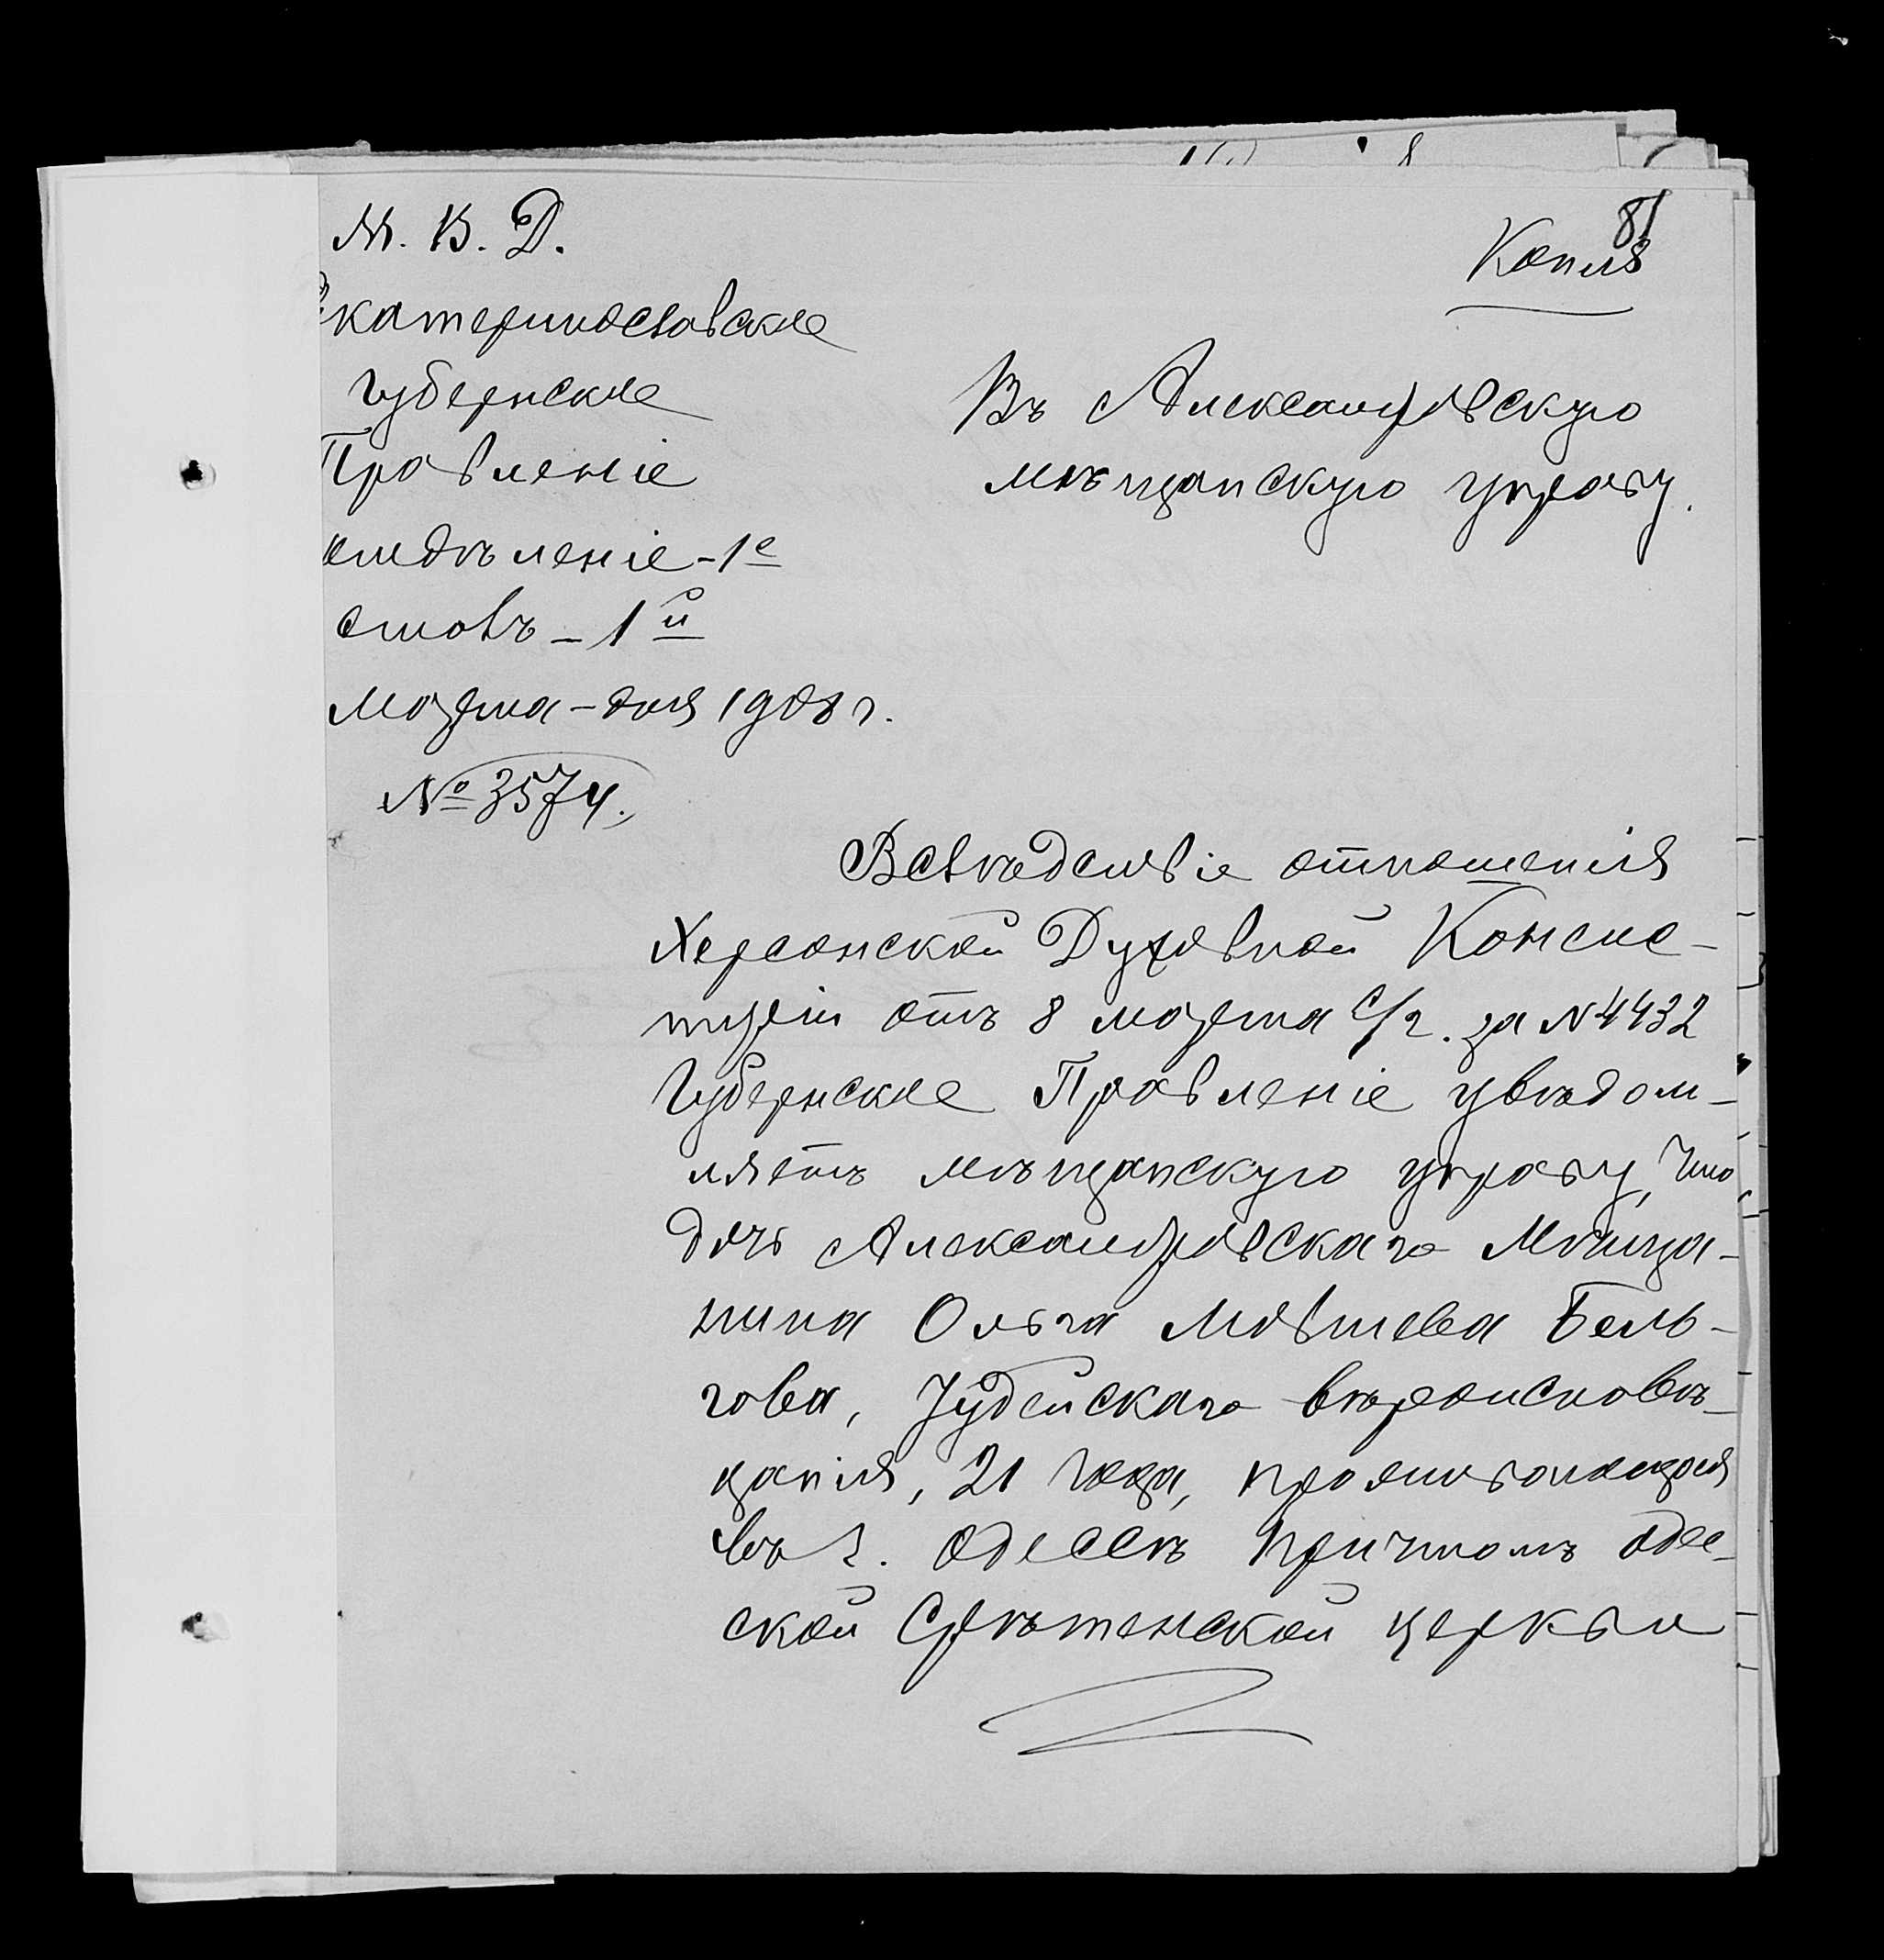 М. В. Д.
81
Копія
Екатеринославское
Губернское
Правленіе
отдѣленіе - 1е
столъ - 1й
Марта - дня 1908 г.
№ 3574.
Въ Александровскую
мѣщанскую управу.
Вслѣдствіе отношенія
Херсонской Духовной Консис-
торіи отъ 8 марта с/г. за № 4432
Губернское Правленіе увѣдом-
ляетъ мѣщанскую управу, что
дочь Александровскаго Мѣща-
нина Ольга Мовшева Бель-
гова, Іудейскаго вѣроисповѣ-
данія, 21 года,
въ г. Одессѣ причтомъ Одес-
ской Срѣтенской церкви